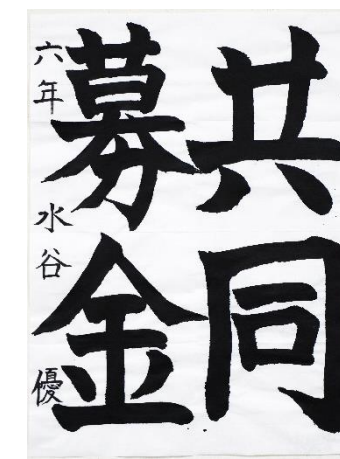 共同
募金
六年 水谷 優